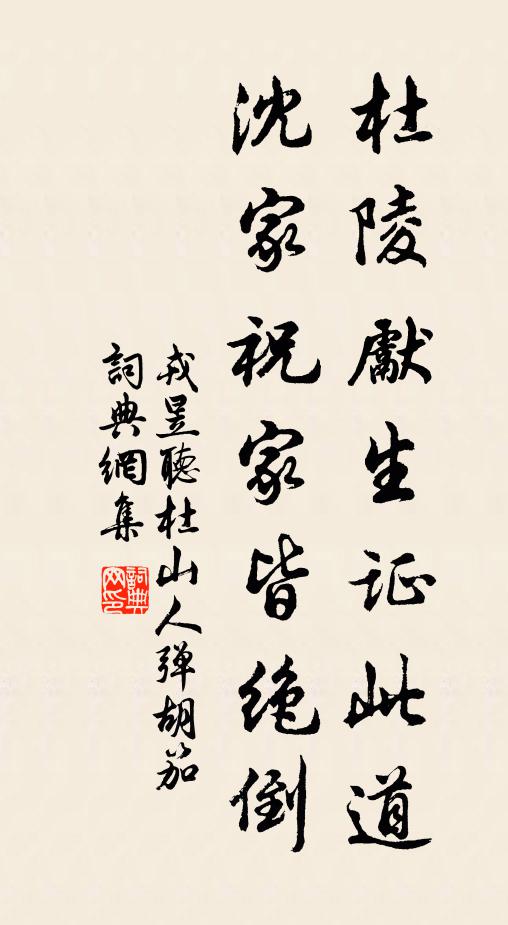 杜陵獻生证此道
沈家祝家皆绝倒
戎昱聽杜山人弹胡笳
詞典網集
詞典网印